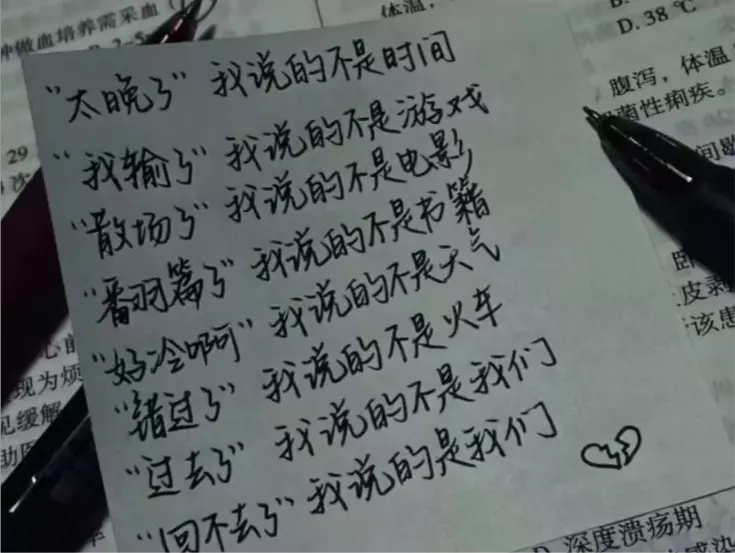 种做血培养需采血
体温，
D. 38 ℃
2-5
腹泻，体温
菌性痢疾。
29
次
间歇
"太晚了"我说的不是时间
"我输了"我说的不是游戏
"散场了"我说的不是电影
"翻篇了"我说的不是书籍
"好冷啊"我说的不是天气
"错过了"我说的不是火车
"过去了"我说的不是我们
"回不去了"我说的是我们
卧
皮剥
该患
心前
现为烦
见缓解
助医
D. 深度溃疡期
感染